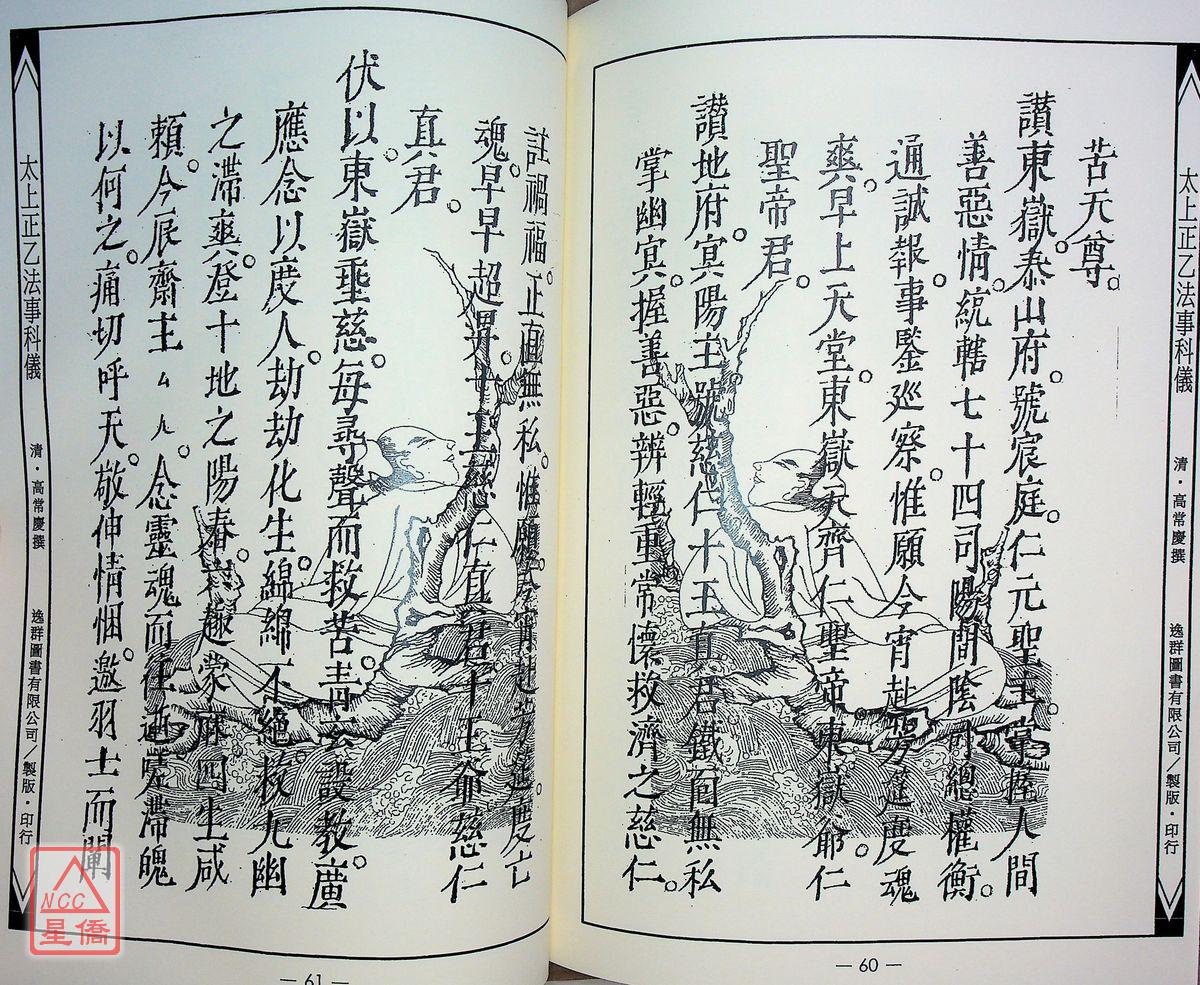 太上正乙法事科儀
清．高常慶撰
逸群圖書有限公司／製版．印行
苦天尊。
讚東嶽泰山府。號宸庭。仁元聖主。掌握人間
善惡情。統轄七十四司陽間陰司總權衡。
通誠報事鑒巡察。惟願今宵赴蓮度魂
爽。早上天堂。東嶽天齊仁聖帝。東嶽爺。仁
聖帝君。
讚地府。冥陽主號慈仁十王真君鐵面無私
掌幽冥。握善惡。辨輕重常懷救濟之慈仁。
— 60 —
註禍福。正直無私。惟願今宵赴蓮。度亡
魂。早早超昇。十王慈仁真君十王爺慈仁
真君。
伏以。東嶽垂慈。每尋聲而救苦。青玄設教。廣
應念以度人。劫劫化生。綿綿不絕。拔九幽
之滯爽。登十地之陽春。趣蒙庥四生咸
賴。今辰齋主厶九。念靈魂而往。滯魄
以何之。痛切呼天。敬伸情悃。邀羽士而闡
— 61 —
太上正乙法事科儀
清．高常慶撰
逸群圖書有限公司／製版．印行
NCC
星僑